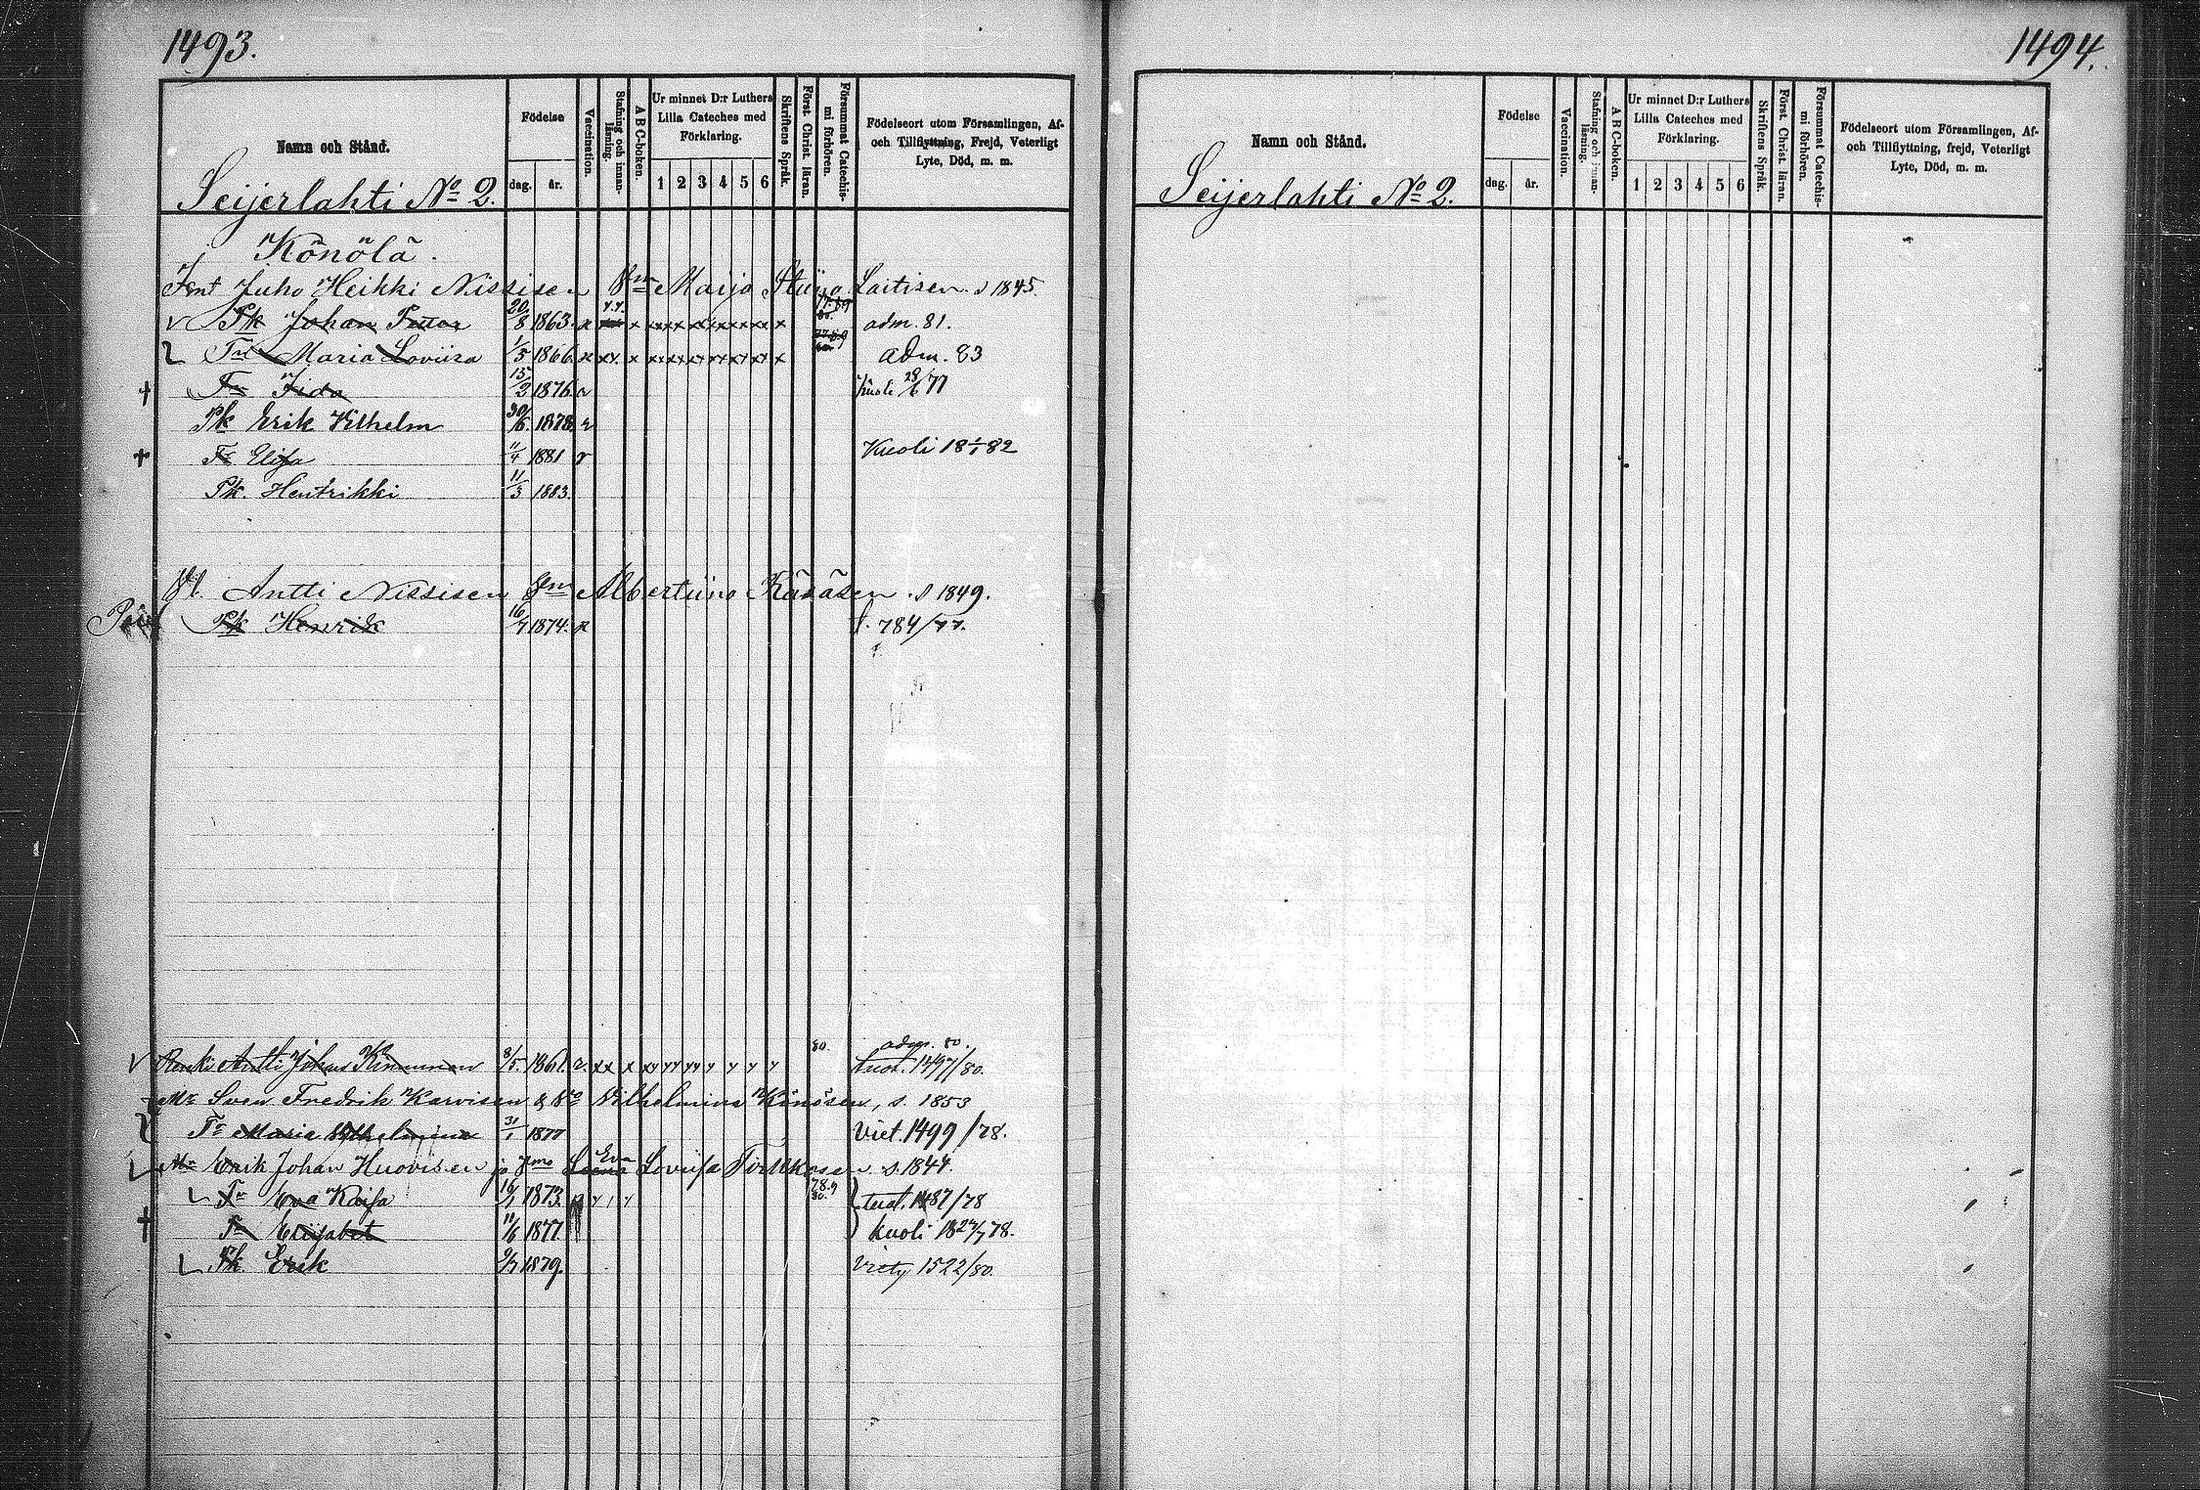 1493.
Namn och Stånd.
Födelse
dag. år.
Vaccination.
Stafning och innanläsning.
A B C-boken.
Ur minnet D:r Luthers Lilla Cateches med Förklaring.
1 2 3 4 5 6
Skriftens Språk.
Först. Christ. läran.
Försummat Catechismi förhören.
Födelseort utom Församlingen, Af-
och Tillflyttning, Frejd, Veterligt
Lyte, Död, m. m.
Seijerlahti No 2.
Könölä.
Juho Heikki Nissisen Maija Stiina Laitisen s 1845.
Pk Johan Petter 20/8 1863. adm. 81.
Maria Loviisa 1/5 1866. adm. 83
Iida 15/2 1876 kuoli 28/6 77
Pk Erik Vilhelm 30/6 1878
Elisa 11/4 1881 Kuoli 18 1/1 82
Pk. Hentrikki 11/3 1883.
Antti Nissisen Albertiina Räsäsen s 1849.
Pk Henrik 16/7 1874. 784/77.
adm. 80.
Renki Antti Johan Kinnunen 8/5 1861. 80. tuot. 1497/80.
Sven Fredrik Karvisen & Vilhelmina Könösen, s. 1853
Maria Vilhelmina 31/1 1877 Viet. 1499/78.
Erik Johan Huovisen ja Eva Loviisa Tirkkosen s. 1844.
Eva Kaisa 16/1 1873. tuot. 1487/78
Elisabet 11/6 1877. kuoli 18 24/7 78.
Pk Erik 1879. Viety 1522/80.
1494.
Namn och Stånd.
Födelse
dag. år.
Vaccination.
Stafning och innanläsning.
A B C-boken.
Ur minnet D:r Luthers Lilla Cateches med Förklaring.
1 2 3 4 5 6
Skriftens Språk.
Först. Christ. läran.
Försummat Catechismi förhören.
Födelseort utom Församlingen, Af-
och Tillflyttning, frejd, Veterligt
Lyte, Död, m. m.
Seijerlahti No 2.